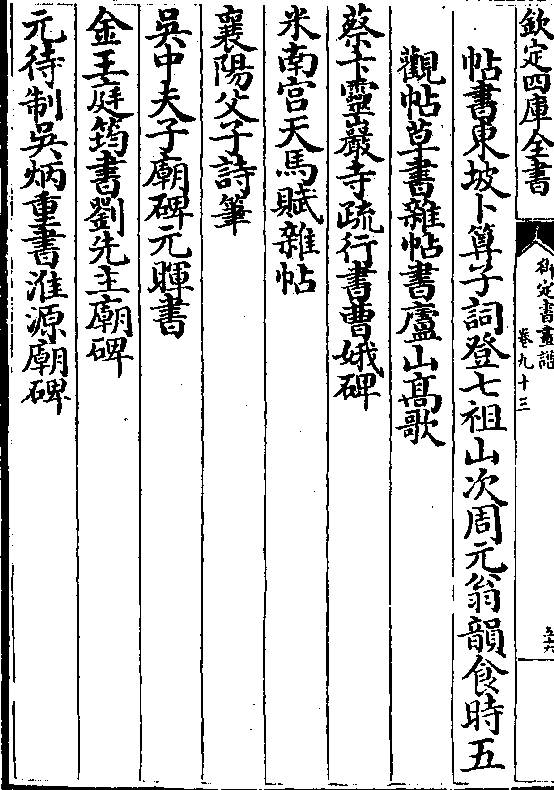 欽定四庫全書
御定書畫譜
卷九十三
帖書東坡卜算子詞登七祖山次周元翁韻食時五
觀帖草書雜帖書廬山高歌
蔡卞靈巖寺疏行書曹娥碑
米南宫天馬賦雜帖
襄陽父子詩筆
吳中夫子廟碑元暉書
金王庭筠書劉先主廟碑
元待制吳炳重書淮源廟碑